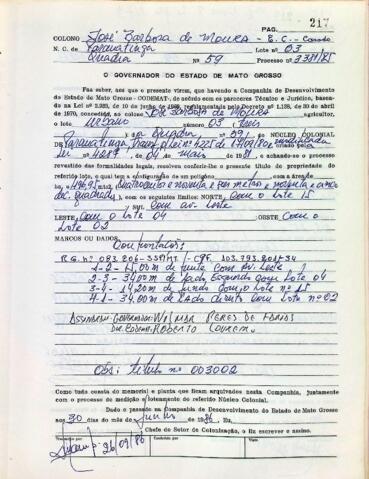 PAG. 217
COLONO José Barbosa de Moura - E.C. - Casado
N. C. de Paranatinga Lote nº 03
Quadra Nº 59 Processo nº 3381/81
O GOVERNADOR DO ESTADO DE MATO GROSSO
Faz saber, aos que o presente virem, que havendo a Companhia de Desenvolvimento
do Estado de Mato Grosso - CODEMAT, de acôrdo com os pareceres Técnico e Jurídico, baseado
na Lei nº 2.925, de 10 de junho de 1969, regulamentada pelo Decreto nº 1.138, de 30 de abril
de 1970, concedido ao colono José Barbosa de Moura
o lote Urbano número 03 - três
da Quadra 59, do NÚCLEO COLONIAL
de Paranatinga
Lei nº 4287 de 04 de maio de 81, e achando-se o processo
revestido das formalidades legais, resolveu conferir-lhe o presente título de propriedade do
referido lote, o qual tem a configuração de um polígono com a área de
com os seguintes limites: NORTE Com o lote 15
SUL Com av. Leste
LESTE Com o lote 04 OESTE Com o
Lote 02
MARCOS OU DADOS: Confrontações
R.G. nº 083.206 - SSP/MT - CPF. 103.793.201-34
1-2 - 15,00m de frente com Av. Leste
2-3 - 34,00m de Lado Esquerdo com Lote 04
3-4 - 14,20m de fundo com o Lote nº 15
4-1 - 34,00m de Lado direito com Lote nº 02
Assinaram - Governador: Wilmar Peres de Farias
Dir. Codemat: Roberto
Obs: título nº 003002
Como tudo consta do memorial e planta que ficam arquivados nesta Companhia, juntamente
com o processo de medição e loteamento do referido Núcleo Colonial.
Dado e passado na Companhia de Desenvolvimento do Estado de Mato Grosso
aos 30 dias do mês de Junho de 1986. Eu,
Chefe do Setor de Colonização, o fiz escrever e assino.
26/09/86